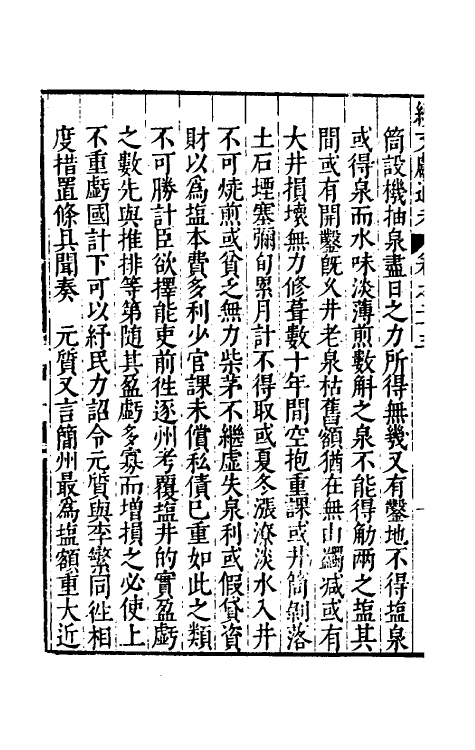 筒設機抽泉盡日之力所得無幾又有鑿地不得塩泉
或得泉而水味淡薄煎數斛之泉不能得觔兩之塩其
間或有開鑿旣乆井老泉枯舊額猶在無由蠲减或有
大井損壞無力修葺數十年間空抱重課或井筒剝落
土石堙塞彌旬累月計不得取或夏冬漲潦淡水入井
不可燒煎或貧乏無力柴茅不繼虚失泉利或假貸資
財以爲塩本費多利少官課未償私債已重如此之類
不可勝計臣欲擇能吏前徃逐州考覆塩井的實盈虧
之數先與推排等第隨其盈虧多寡而增損之必使上
不重虧國計下可以紓民力詔令元質與李蘩同徃相
度措置條具聞奏　元質又言簡州最爲塩額重大近